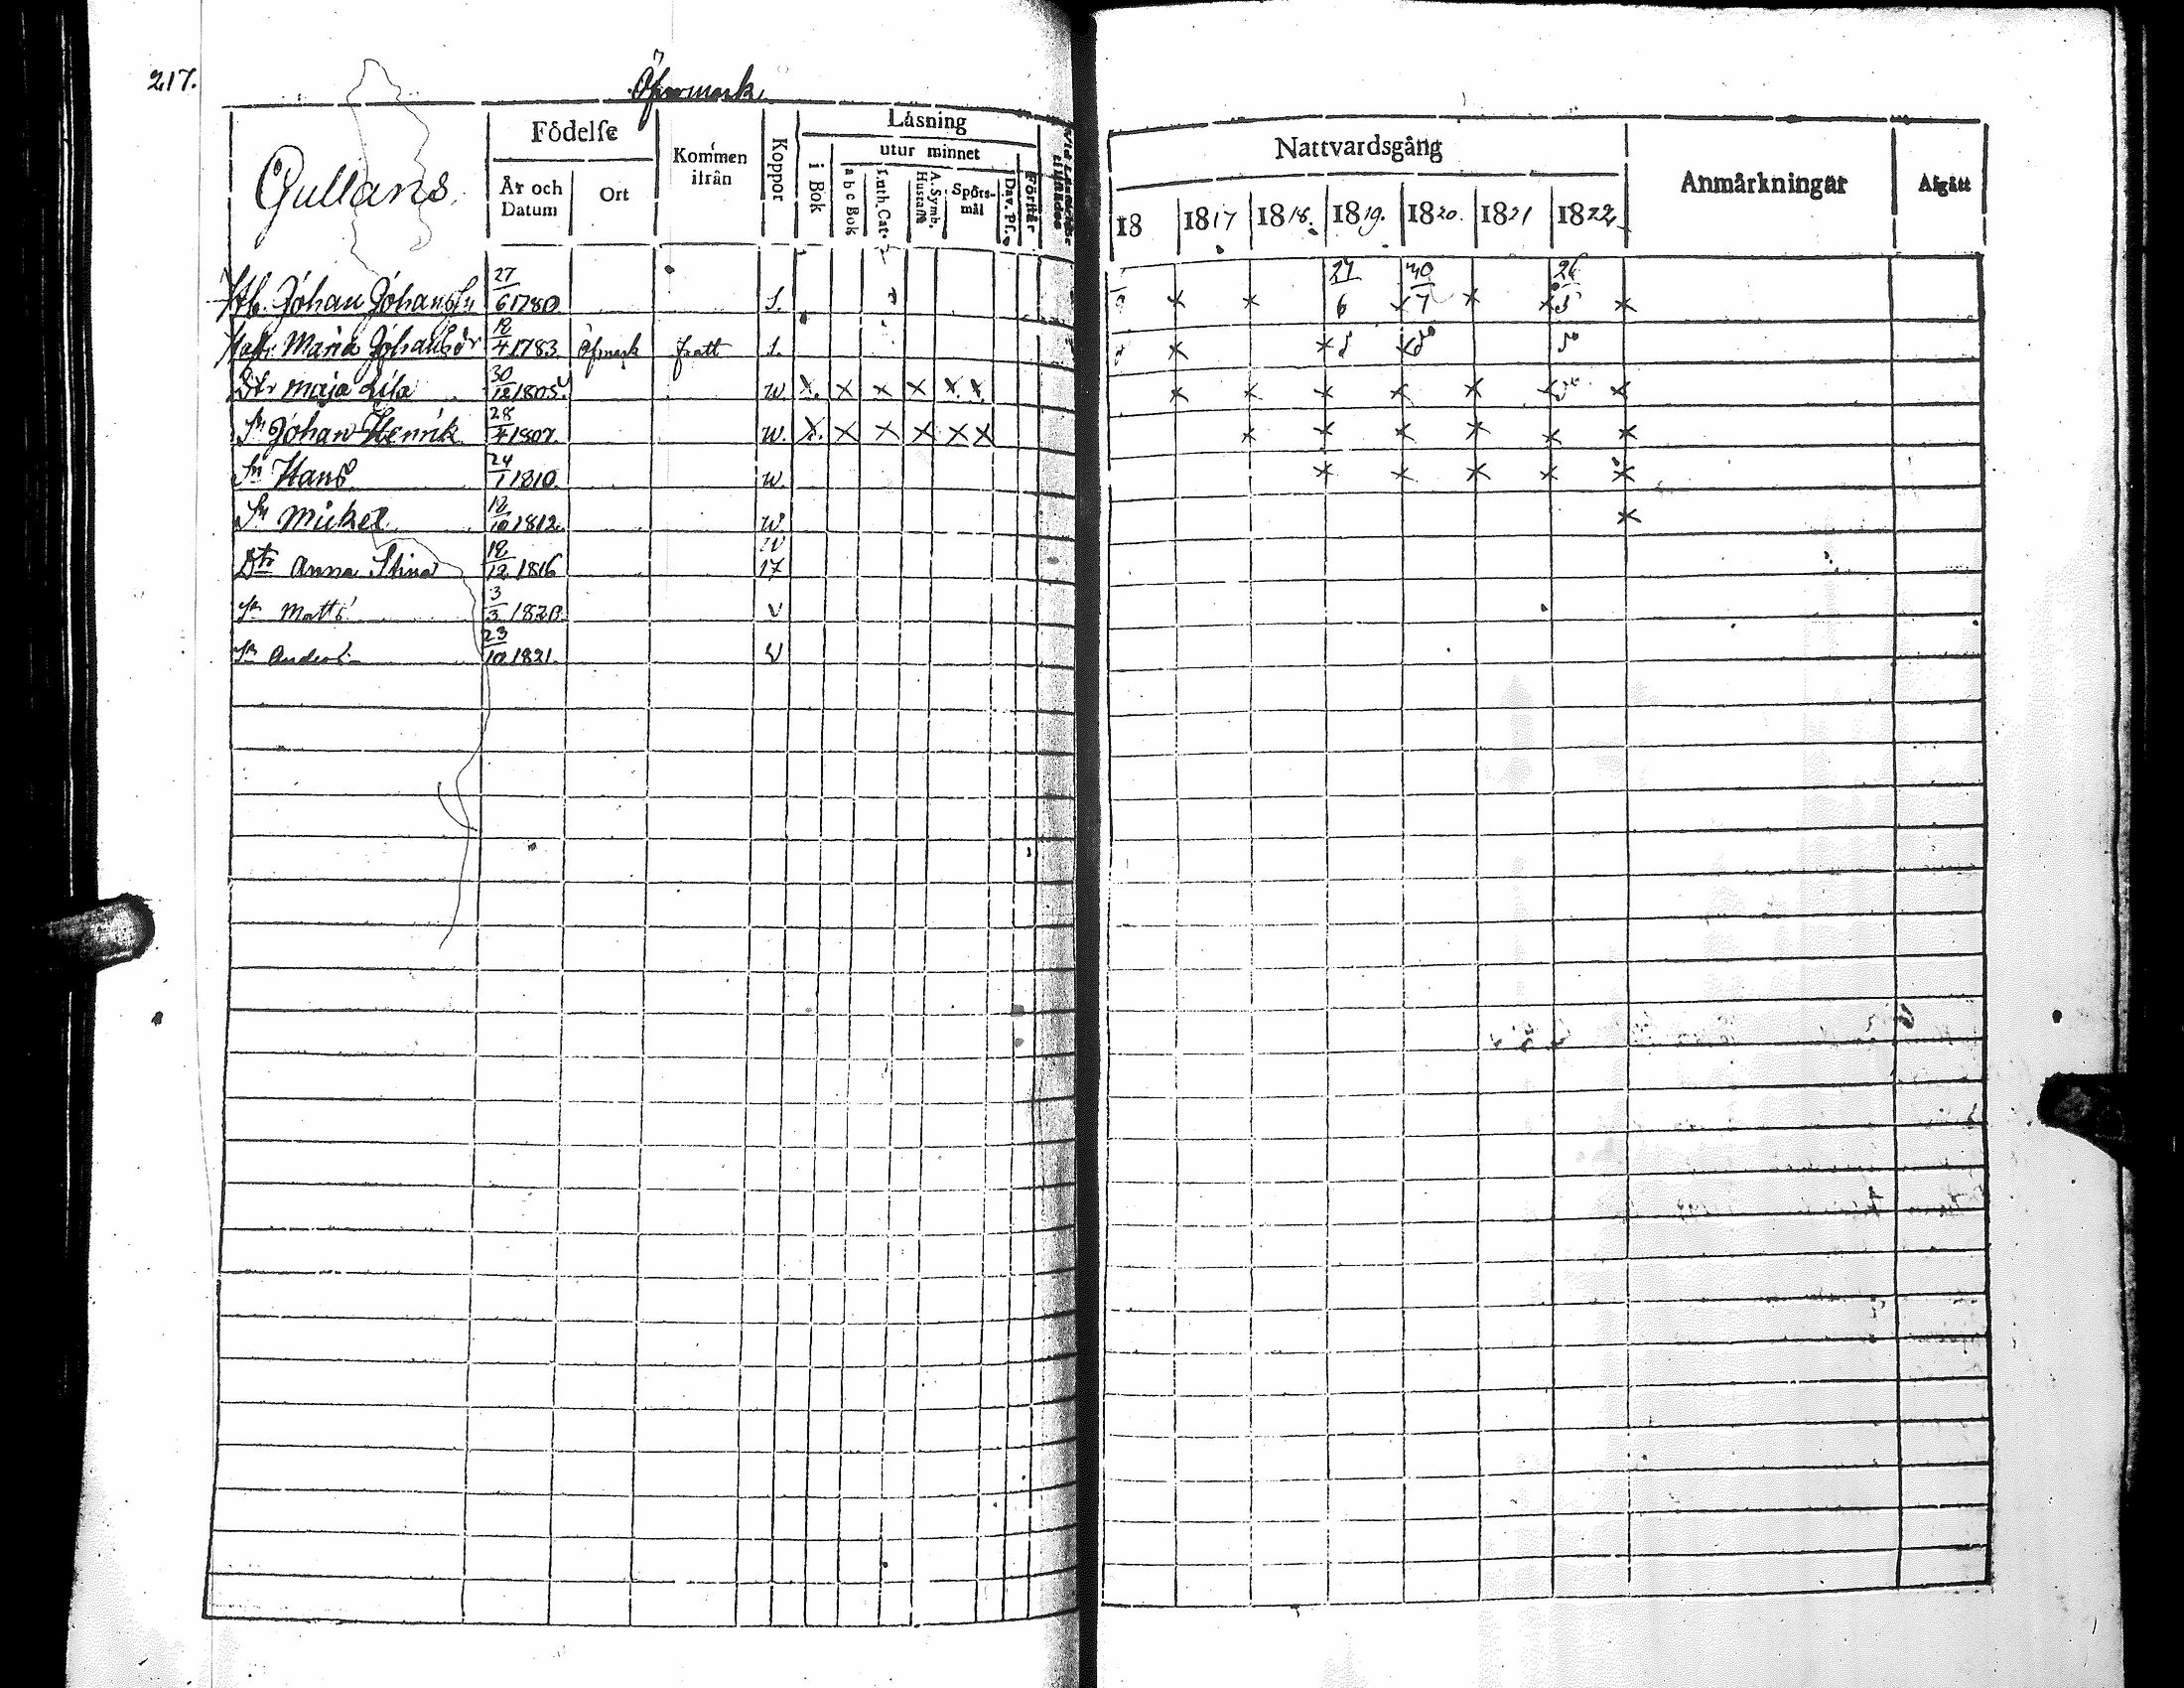 217.
Öfvermark
Gullans.
Födelse
År och Datum
Ort
Kommen ifrån
Koppor
Läsning
i Bok
utur minnet
a b c Bok
Luth. Cat.
A. Symb. Hustafla
Spörs-mål
Dav. Ps.
Förstår
Nattvardsgång
18 1817 1818. 1819. 1820. 1821 1822
Anmärkningar
Afgått
Johan Johans Sn 27/6 1780. S. x x 27/6 x 30/7 x x 26/5 x
Maria Johans Dr 12/4 1783 Öfmark S. x x x x
Dtr Maja Lisa 30/12 1805. w x. x x x x x. x x x x x x x
Sn Johan Henrik 28/4 1807. w. x. x x x x x x x x x x x
Sn Hans 24/1 1810. w. x x x x x
Sn Mickel 12/10 1812. w x
Dtr Anna Stina 12/12 1816 w 17
Sn Matts 3/3 1820. v
Sn Anders 23/10 1821. v